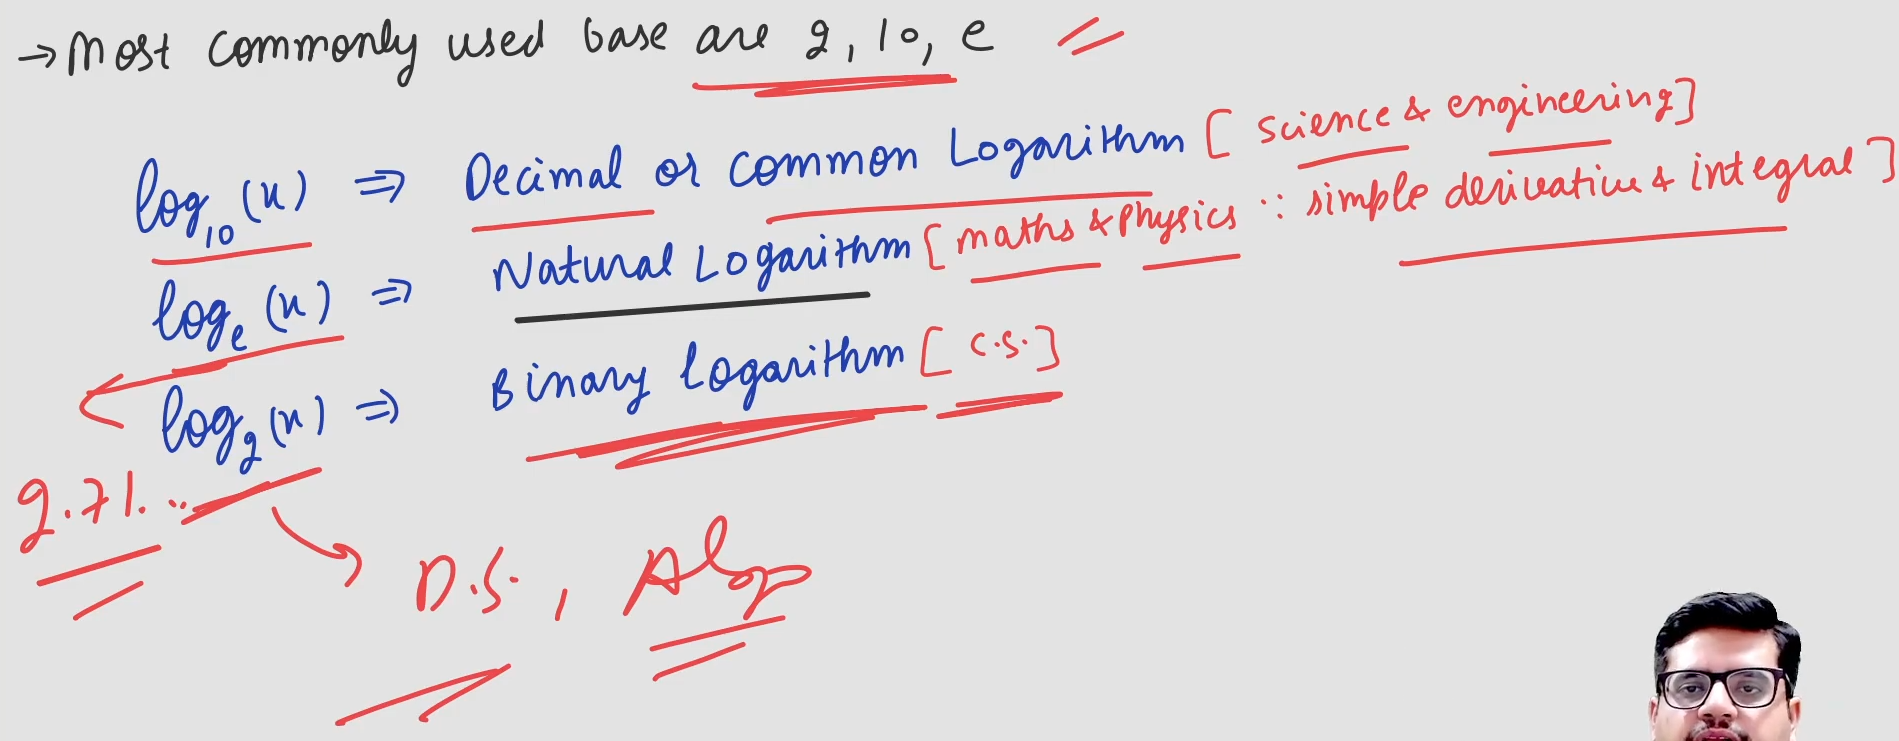 → Most commonly used base are 2, 10, e
log₁₀(x) ⇒ Decimal or Common Logarithm [science & engineering]
logₑ(x) ⇒ Natural Logarithm [maths & Physics ∵ simple derivative & integral]
log₂(x) ⇒ Binary Logarithm [C.S.]
2.71...
D.S., Algo